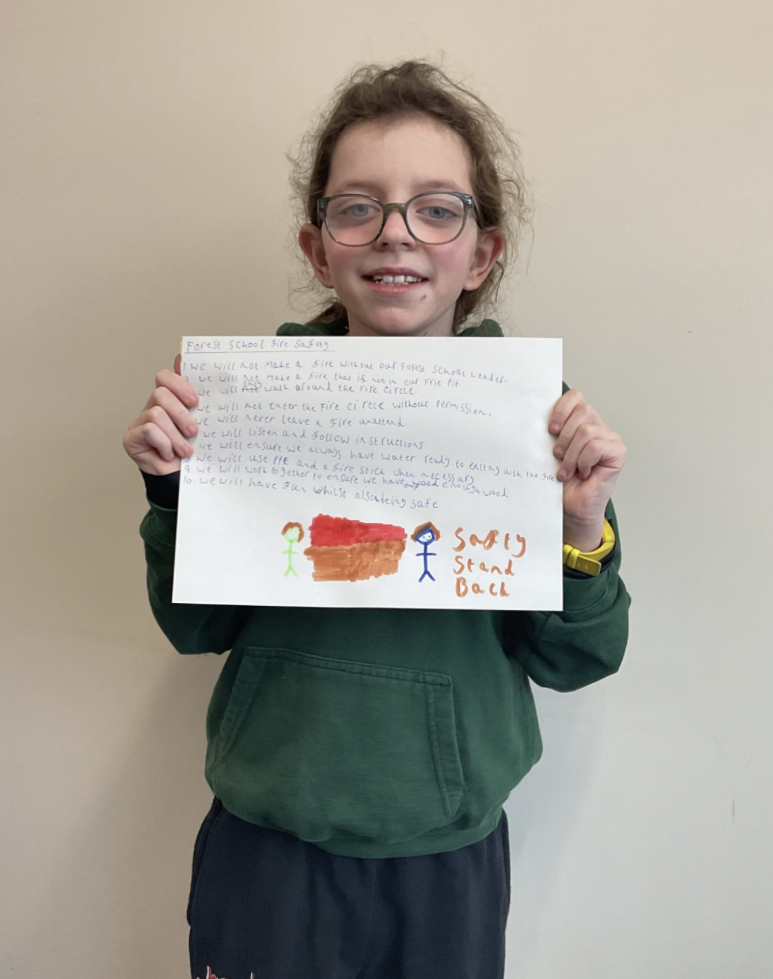 Forest School fire Safty
1. we will not make a fire without our Forest School Leader.
2. we will not make a fire that is not in our Frie Pit
we will walk around the Fire Circle
we will not enter the Fire Circle without Permission.
we will never leave a fire unattend
we will listen and follow instructions
we will ensure we always have water ready to with the fire
we will use PPE and a fire stick when necessary
9. we will work together to ensure we have enough wood
10. we will have fun whilst also being safe
Safty
Stand
Back